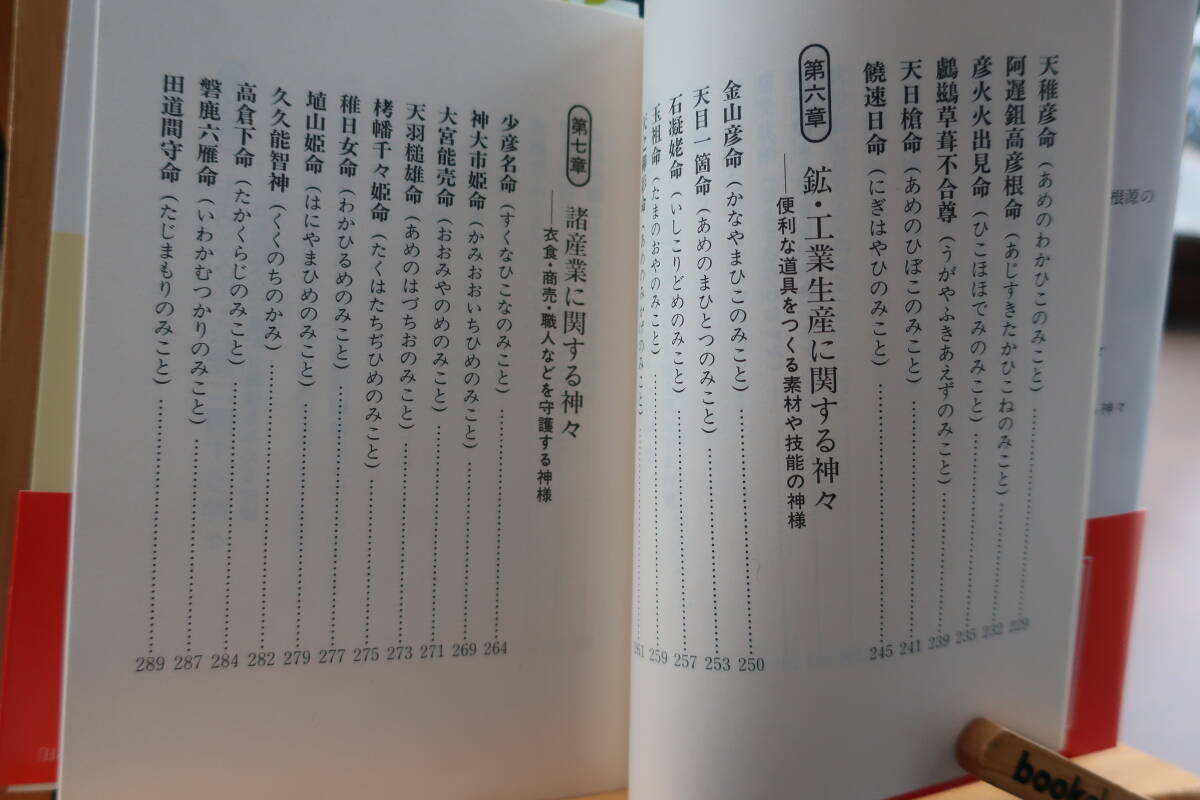 天稚彦命（あめのわかひこのみこと）……229
阿遅鉏高彦根命（あじすきたかひこねのみこと）……232
彦火火出見命（ひこほほでみのみこと）……235
鸕鷀草葺不合尊（うがやふきあえずのみこと）……239
天日槍命（あめのひぼこのみこと）……241
饒速日命（にぎはやひのみこと）……245
第六章 鉱・工業生産に関する神々
──便利な道具をつくる素材や技能の神様
金山彦命（かなやまひこのみこと）……250
天目一箇命（あめのまひとつのみこと）……253
石凝姥命（いしこりどめのみこと）……257
玉祖命（たまのおやのみこと）……259
261
第七章 諸産業に関する神々
──衣食・商売・職人などを守護する神様
少彦名命（すくなひこなのみこと）……264
神大市姫命（かみおおいちひめのみこと）……269
大宮能売命（おおみやのめのみこと）……271
天羽槌雄命（あめのはづちおのみこと）……273
栲幡千々姫命（たくはたちぢひめのみこと）……275
稚日女命（わかひるめのみこと）……277
埴山姫命（はにやまひめのみこと）……279
久久能智神（くくのちのかみ）……282
高倉下命（たかくらじのみこと）……284
磐鹿六雁命（いわかむつかりのみこと）……287
田道間守命（たじまもりのみこと）……289
根源の
神々